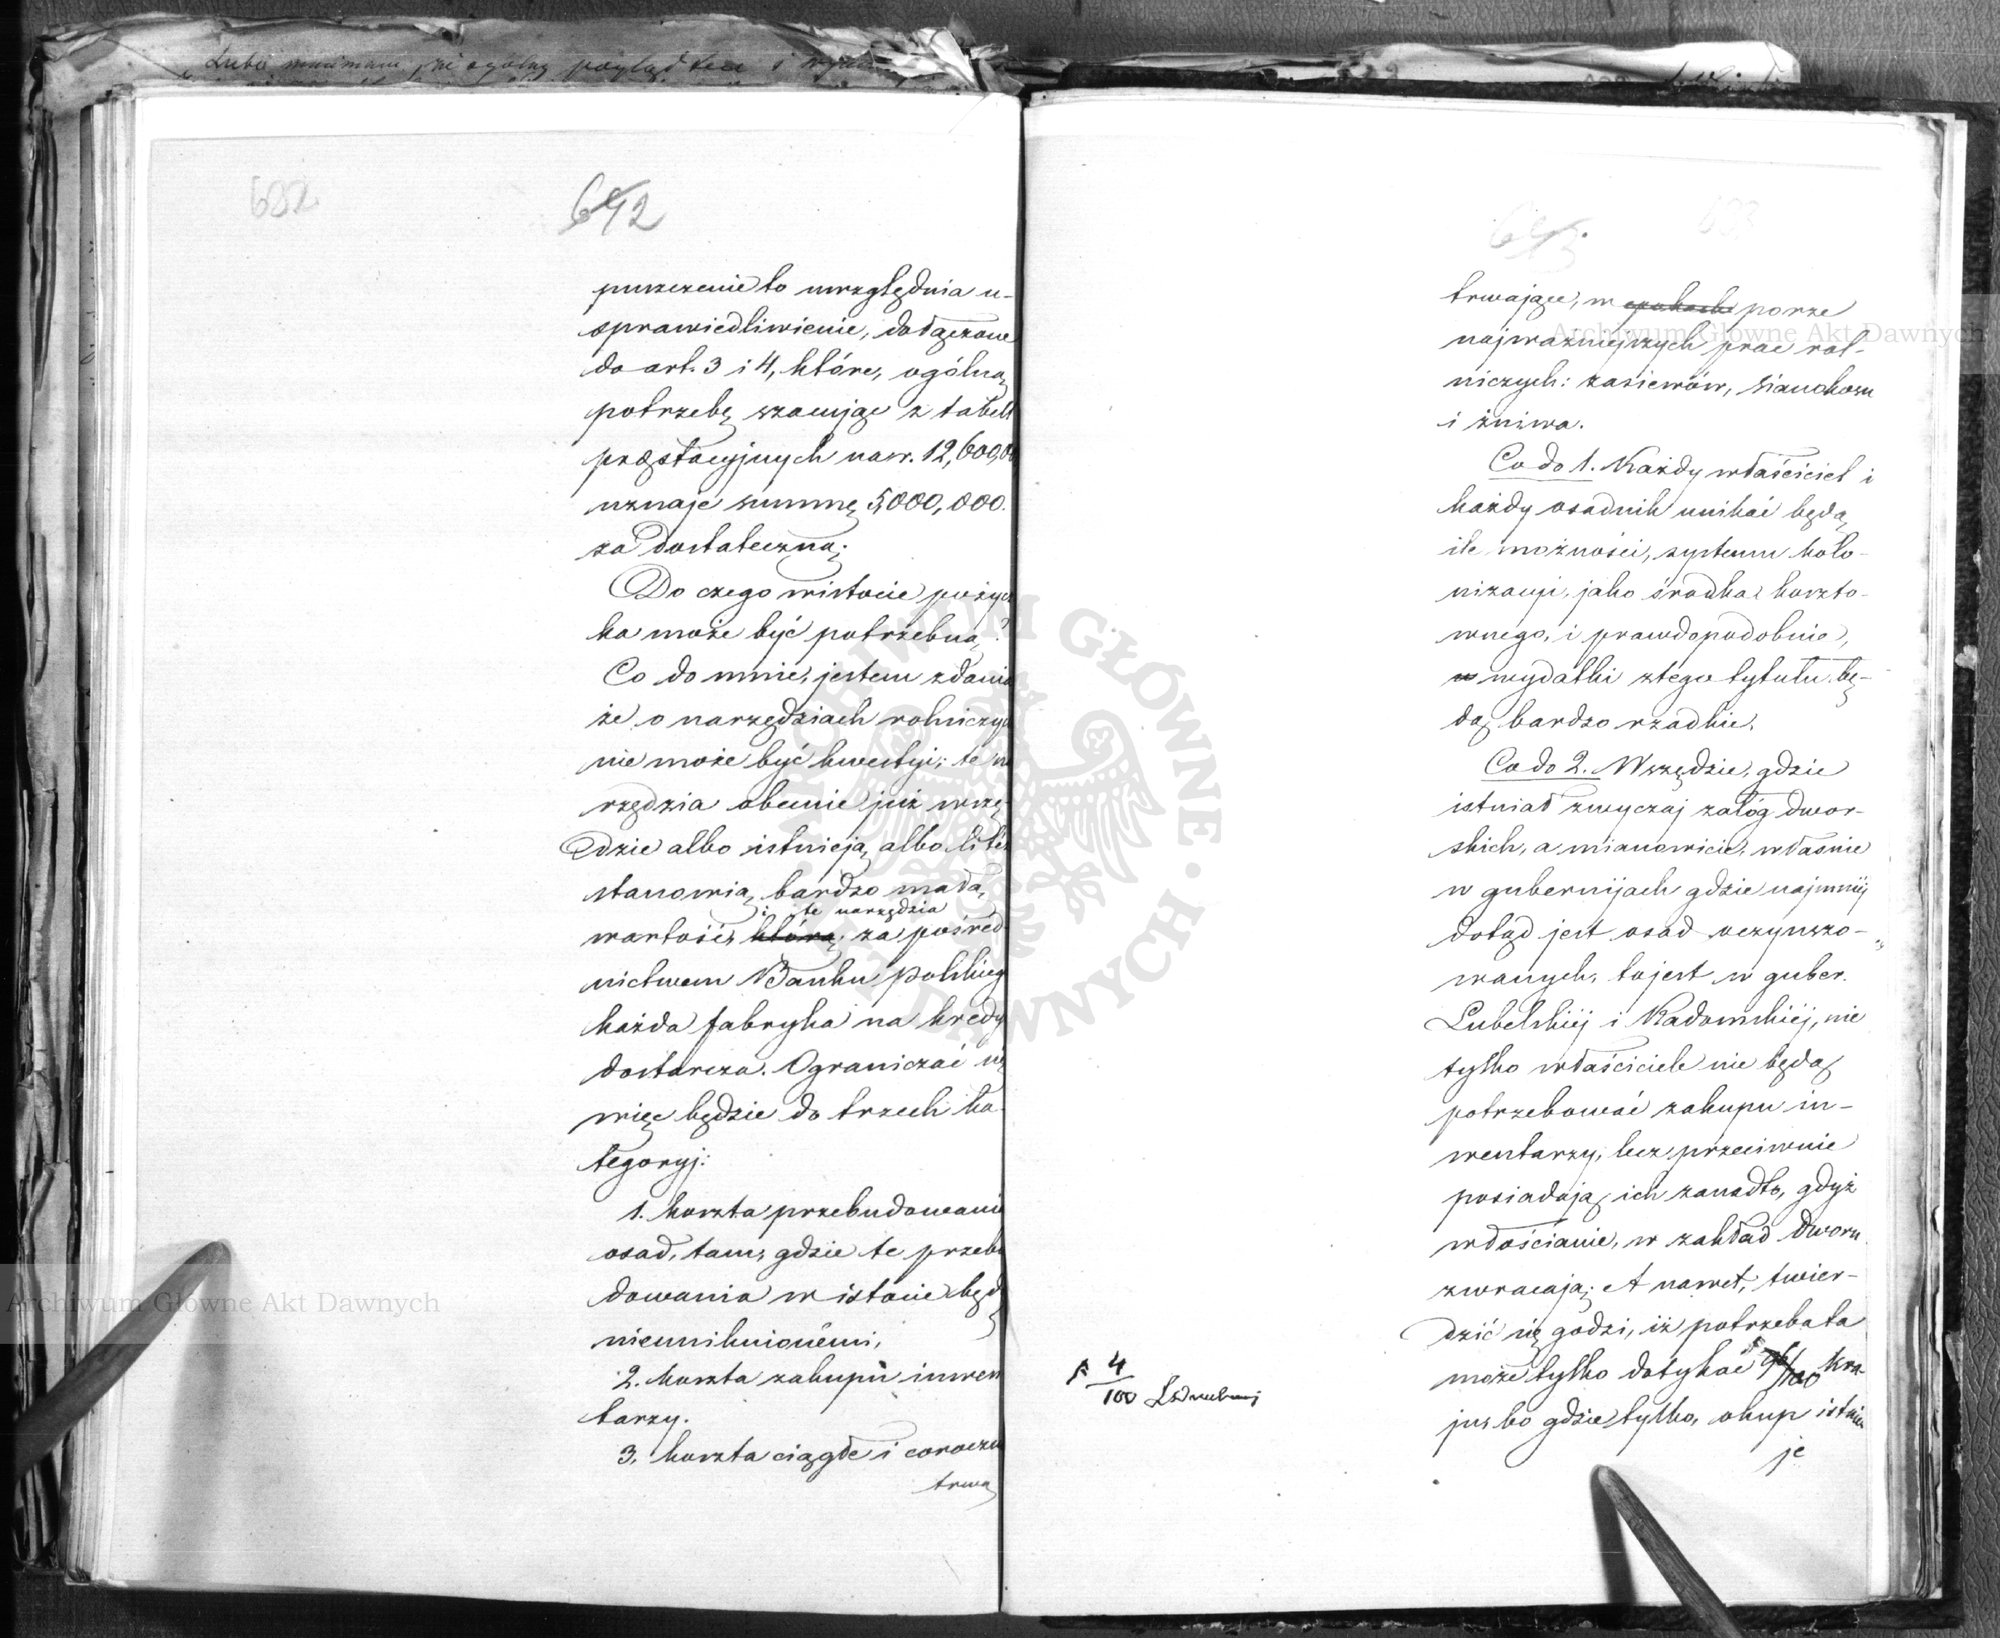 682
642
puszczenie to uwzględnia u-
sprawiedliwienie, dołączone
do art. 3 i 4, które, ogólną
potrzebę szacując z tabell
prestacyjnych na r. 12,600,00
uznaje summę 5,000,000.
za dostateczną.
Do czego wistocie pożycz
ka może być potrzebną?
Co do mnie, jestem zdania
że o narzędziach rolniczych
nie może być kwestyi; te na
rzędzia obecnie już wszę-
dzie albo istnieją albo też
stanowią bardzo małą
i te narzędzia
wartość, którą za pośred-
nictwem Banku polskiego
każda fabryka na kredyt
dostarcza. Ograniczać się
więc będzie do trzech ka-
tegoryj:
1. koszta przebudowania
osad, tam, gdzie te przebu
dowania w istocie będą
nieuniknionémi,
2. koszta zakupu inwen
tarzy.
3. koszta ciągłe i coroczne
trwa
643
683
trwające, w epokach porze
najważniejszych prac rol-
niczych: zasiewów, sianokosu
i żniwa.
Co do 1. Każdy właściciel i
każdy osadnik unikać będą
ile możności, systemu kolo-
nizacyi, jako środka koszto-
wnego, i prawdopodobnie,
w wydatki z tego tytułu bę-
dą bardzo rzadkie.
Co do 2. Wszędzie, gdzie
istniał zwyczaj załóg dwor-
skich, a mianowicie, właśnie
w gubernijach gdzie najmniéj
dotąd jest osad oczynszo-
wanych, to jest w guber.
Lubelskiéj i Radomskiéj, nie
tylko właściciele nie będą
potrzebować zakupu in-
wentarzy, lecz przeciwnie
posiadają ich zanadto, gdyż
włościanie, w zakład dworu
zwracają. A nawet, twier-
dzić się godzi, iż potrzeba ta
może tylko dotykać 5/100 kra-
4/100
ju, bo gdzie tylko, okup istnie
je
Archiwum Główne Akt Dawnych
Archiwum Główne Akt Dawnych
ARCHIWUM GŁÓWNE AKT DAWNYCH